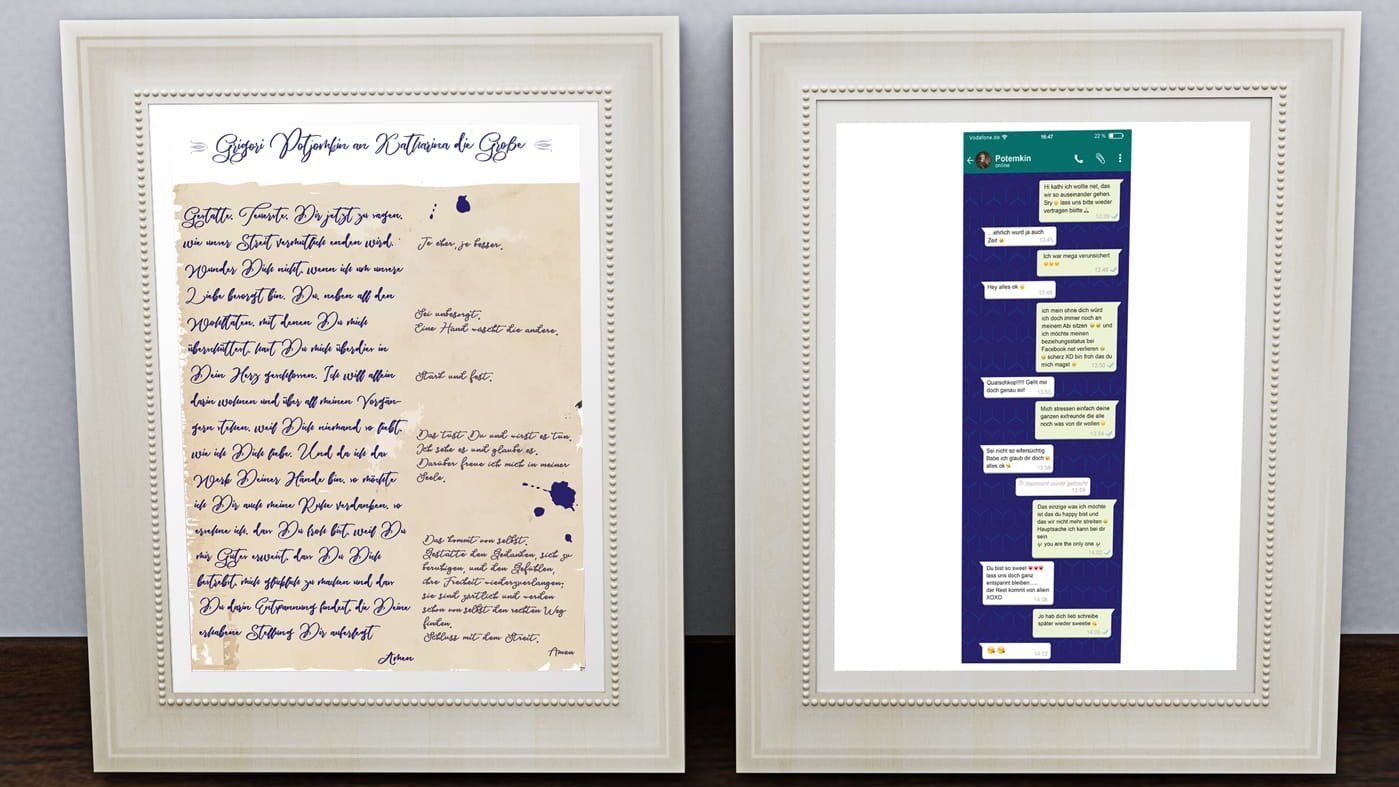 Grigori Potjomkin an Katharina die Große
Gestatte, Teuerste, Dir jetzt zu sagen,
wie unser Streit vermutlich enden wird.
Wunder Dich nicht, wenn ich um unsere
Liebe besorgt bin. Du, neben all den
Wohltaten, mit denen Du mich
überschüttest, hast Du mich überdies in
Dein Herz geschlossen. Ich will allein
darin wohnen und über all meinen Vorgän-
gern stehen, weil Dich niemand so liebt,
wie ich Dich liebe. Und da ich das
Werk Deiner Hände bin, so möchte
ich Dir auch meine Ruhe verdanken, so
ersehne ich, dass Du froh bist, weil Du
mir Gutes erweist, dass Du Dich
bestrebst, mich glücklich zu machen und dass
Du darin Entspannung findest, die Deine
erhabene Stellung Dir auferlegt
Amen
Je eher, je besser.
Sei unbesorgt.
Eine Hand wäscht die andere.
Stark und fest.
Das tust Du und wirst es tun.
Ich sehe es und glaube es.
Darüber freue ich mich in meiner
Seele.
Das kommt von selbst.
Gestatte den Gedanken, sich zu
beruhigen, und den Gefühlen,
ihre Freiheit wiederzuerlangen;
sie sind zärtlich und werden
schon von selbst den rechten Weg
finden.
Schluss mit dem Streit.
Amen
Vodafone.de 16:47 22 %
Potemkin
online
Hi kathi ich wollte net, das
wir so auseinander gehen.
Sry 😔 lass uns bitte wieder
vertragen biiitte 🙏
13:39
...ehrlich wurd ja auch
Zeit
13:45
Ich war mega verunsichert
13:46
Hey alles ok
13:48
ich mein ohne dich würd
ich doch immer noch an
meinem Abi sitzen und
ich möchte meinen
beziehungsstatus bei
Facebook net verlieren
scherz XD bin froh das du
mich magst
13:50
Quatschkopf!!!!! Geht mir
doch genau so!
13:53
Mich stressen einfach deine
ganzen exfreunde die alle
noch was von dir wollen
13:54
Sei nicht so eifersüchtig
Babe ich glaub dir doch
alles ok
13:58
Nachricht wurde gelöscht
13:59
Das einzige was ich möchte
ist das du happy bist und
das wir nicht mehr streiten
Hauptsache ich kann bei dir
sein
you are the only one
14:02
Du bist so sweet ❤❤❤
lass uns doch ganz
entspannt bleiben.....
der Rest kommt von allein
XOXO
14:08
Jo hab dich lieb schreibe
später wieder sweetie
14:09
😘 😘
14:12